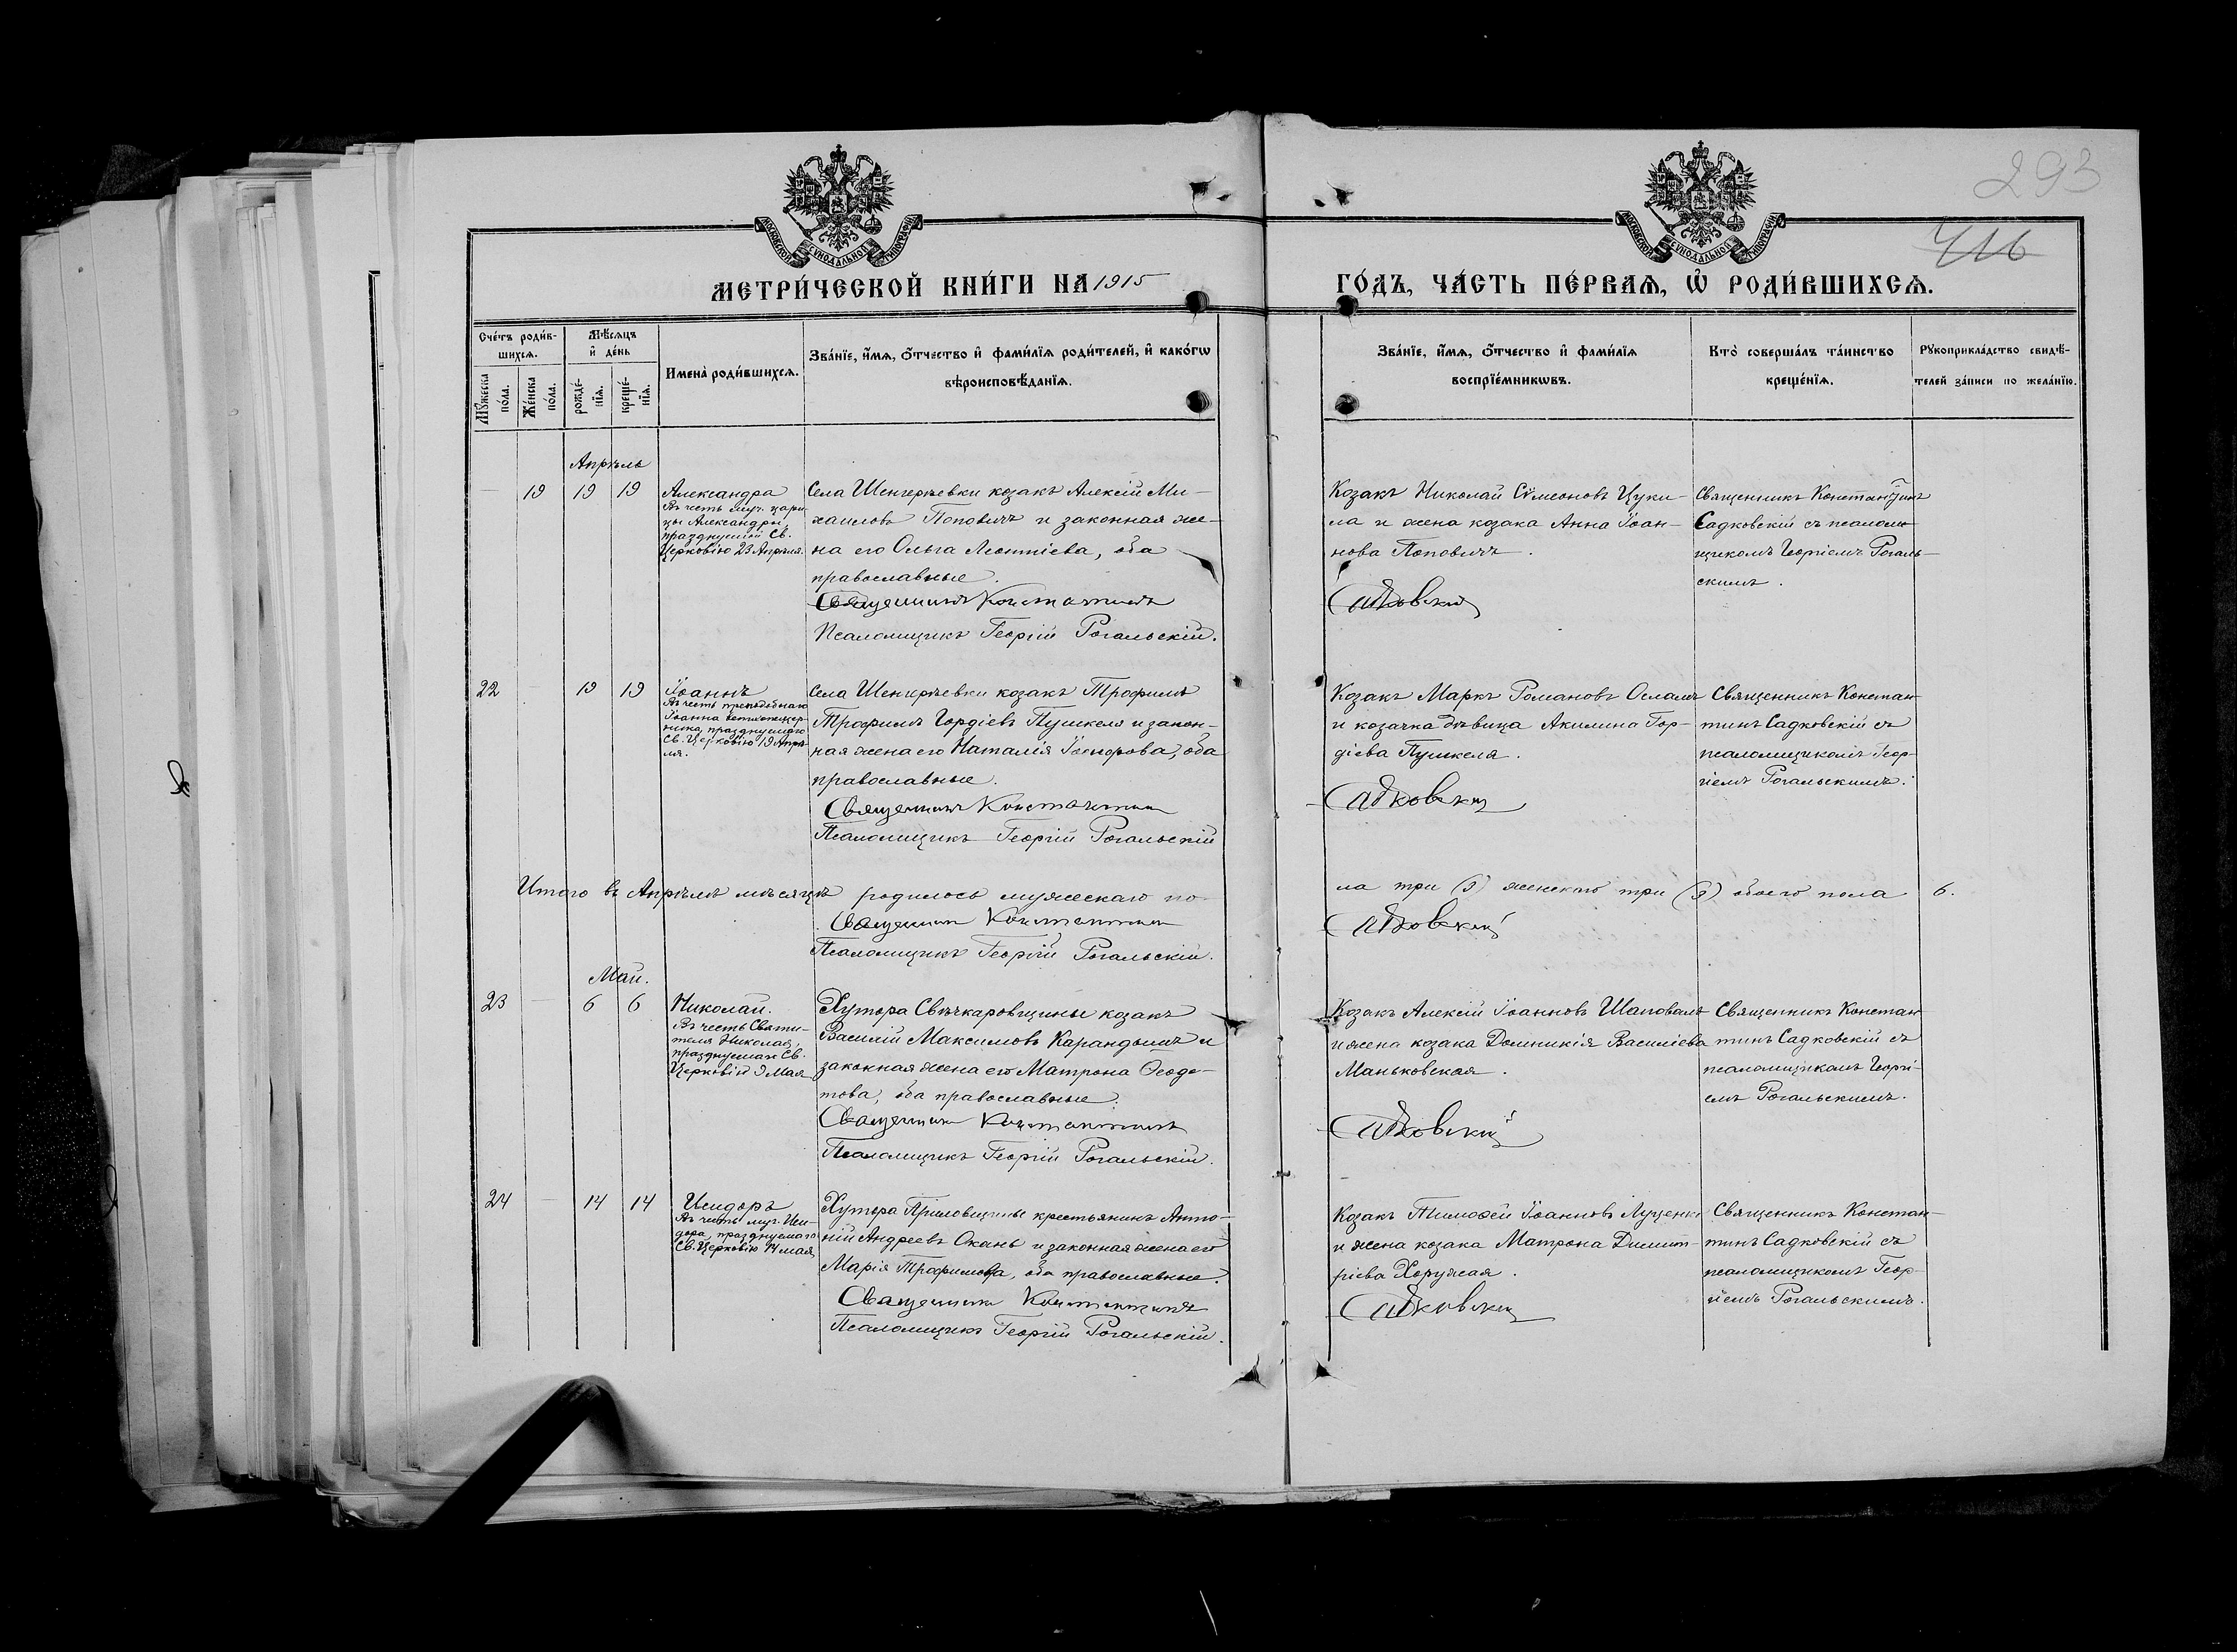 293
416
МОСКОВСКОЙ СѴНОДАЛЬНОЙ ТИПОГРАФІИ
МОСКОВСКОЙ СѴНОДАЛЬНОЙ ТИПОГРАФІИ
МЕТРИ́ЧЕСКОЙ КНИ́ГИ НА 1915
ГО́ДЪ, ЧА́СТЬ ПЕ́РВАѦ, Ѡ҆ РОДИ́ВШИХСѦ.
Сче́тъ роди́в-
шихсѧ.
Мѣ́сѧцъ
и҆ де́нь
Мꙋ́жеска
по́ла.
Же́нска
по́ла.
рожде́-
нїѧ.
креще́-
нїѧ.
Имена̀ роди́вшихсѧ.
Зва́нїе, и҆́мѧ, о҆́тчество и҆ фами́лїѧ роди́телей, и҆ како́гѡ
вѣроисповѣ́данїѧ.
Зва́нїе, и҆́мѧ, о҆́тчество и҆ фами́лїѧ
воспрїе́мникѡвъ.
Кто̀ соверша́лъ та́инство
креще́нїѧ.
Рꙋкоприкла́дство свидѣ́-
телей за́писи по жела́нїю.
Апрѣль
— 19 19 19
Александра
Въ честь муч. цари-
цы Александры,
празднуемой Св.
Церковію 23 Апрѣля.
Села Шенгерѣевки козакъ Алексій Ми-
хаиловъ Поповичъ и законная же-
на его Ольга Леонтіева, оба
православные.
Священникъ Константинъ
Псаломщикъ Георгій Рогальскій.
Козакъ Николай Сѵмеоновъ Цуки-
ла и жена козака Анна Іоан-
нова Поповичъ.
Садковскій
Священникъ Константинъ
Садковскій съ псалом-
щикомъ Георгіемъ Рогаль-
скимъ.
22 — 19 19
Іоаннъ
Въ честь преподобнаго
Іоанна ветхопещер-
ника, празднуемаго
Св. Церковію 19 Апрѣ-
ля.
Села Шенгерѣевки козакъ Трофимъ
Трофимъ Гордіевъ Пушкеля и закон-
ная жена его Наталія Іосифова, оба
православные.
Священникъ Константинъ
Псаломщикъ Георгій Рогальскій
Козакъ Маркъ Романовъ Осламъ
и козачка дѣвица Акилина Гор-
діева Пушкеля.
Садковскій
Священникъ Констан-
тинъ Садковскій съ
псаломщикомъ Геор-
гіемъ Рогальскимъ.
Итого въ Апрѣлѣ мѣсяцѣ родилось мужескаго по-
ла три (3) женскаго три (3) обоего пола 6.
Священникъ Константинъ
Садковскій
Псаломщикъ Георгій Рогальскій.
Май.
23 — 6 6
Николай.
Въ честь Святи-
теля Николая,
празднуемаго Св.
Церковію 9 Мая
Хутора Свѣчкаровщины козакъ
Василій Максимовъ Карандышъ и
законная жена его Матрона Ѳеодо-
това, оба православные.
Священникъ Константинъ
Псаломщикъ Георгій Рогальскій.
Козакъ Алексій Іоанновъ Шаповалъ
и жена козака Домникія Василіева
Маньковская.
Садковскій
Священникъ Констан
тинъ Садковскій съ
псаломщикомъ Георгі-
емъ Рогальскимъ.
24 — 14 14
Исидоръ
Въ честь муч. Иси-
дора, празднуемаго
Св. Церковію 14 мая
Хутора Приловщины крестьянинъ Анто-
ній Андреевъ Окань и законная жена его
Марія Трофимова, оба православные.
Священникъ Константинъ
Псаломщикъ Георгій Рогальскій.
Козакъ Тимоѳей Іоанновъ Луценко
и жена козака Матрона Димит-
ріева Хоружая.
Садковскій
Священникъ Констан-
тинъ Садковскій съ
псаломщикомъ Геор-
гіемъ Рогальскимъ.